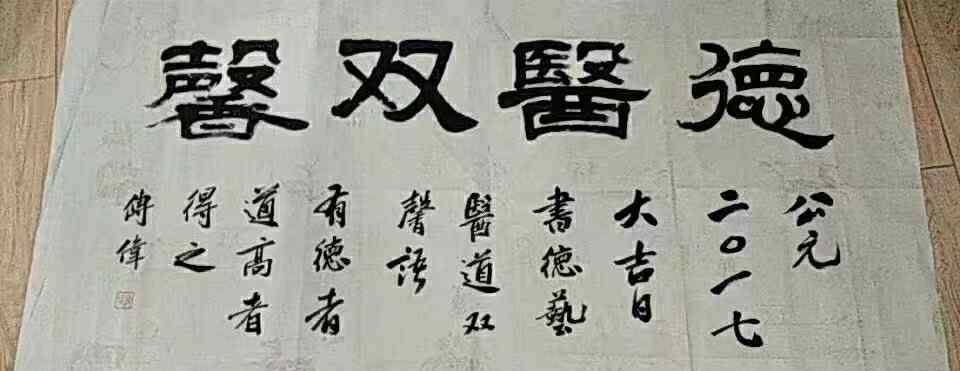 德醫双馨
公元
二〇一七
大吉日
書德藝
醫道双
馨語
有德者
道高者
得之
傅偉